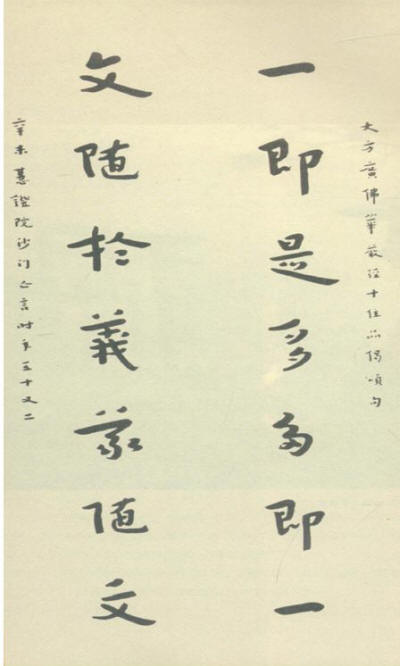 大方廣佛華嚴經十住品偈頌句
一即是多多即一
文随於義義随文
辛未慧證院沙門亡言時年五十又二